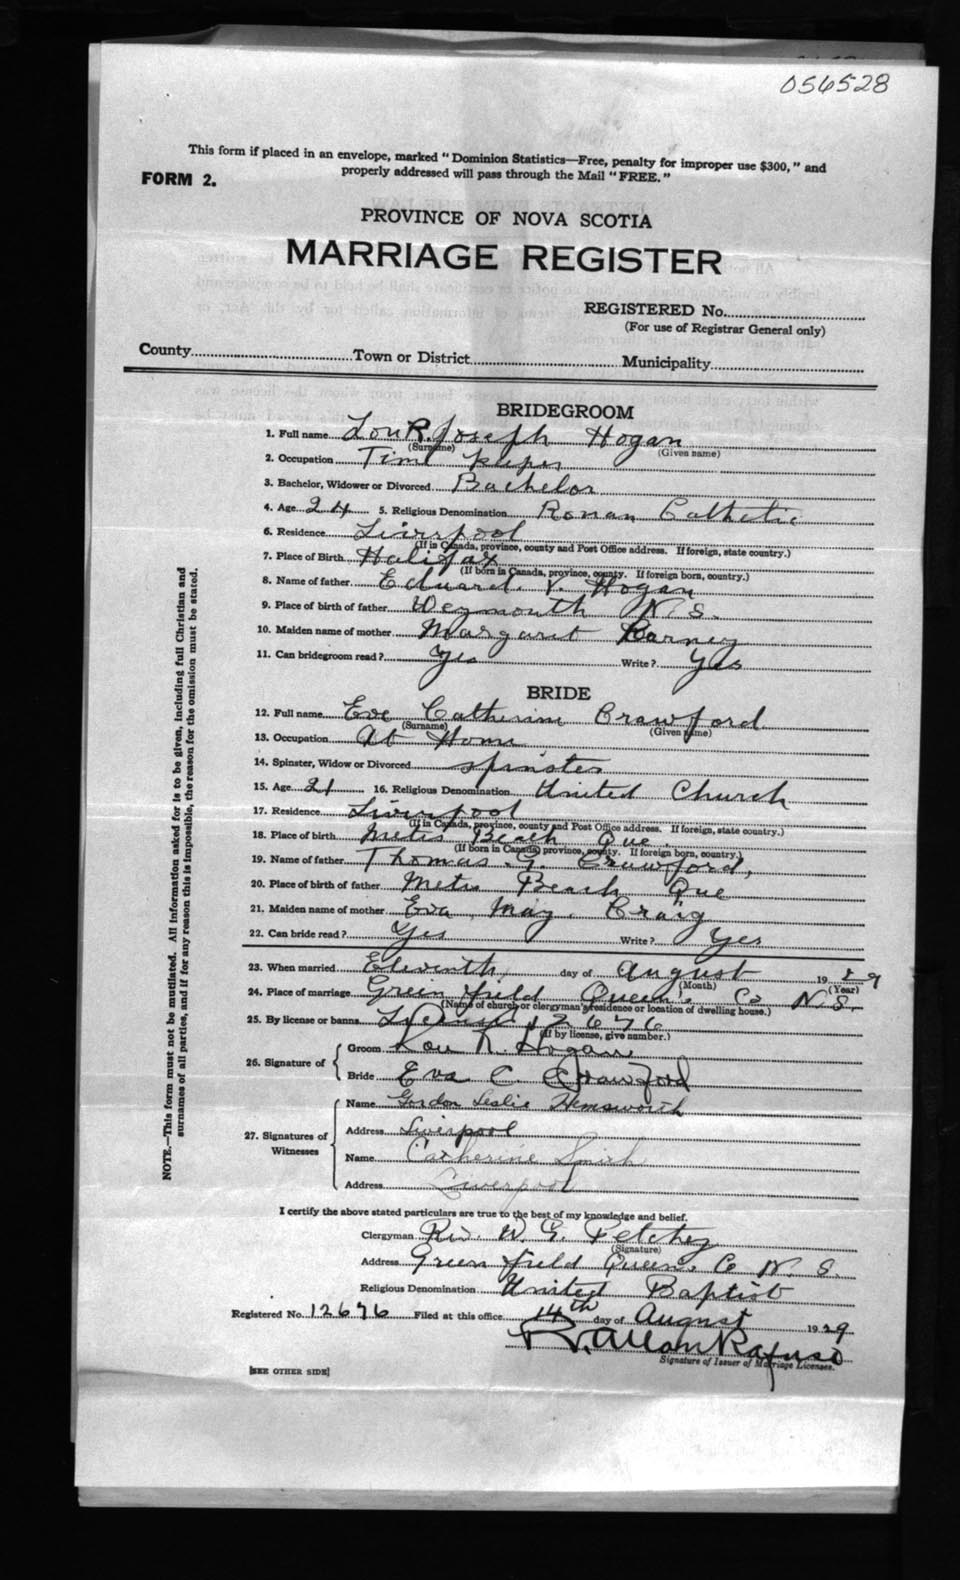 056528
This form if placed in an envelope, marked "Dominion Statistics—Free, penalty for improper use $300," and
properly addressed will pass through the Mail "FREE."
FORM 2.
PROVINCE OF NOVA SCOTIA
MARRIAGE REGISTER
REGISTERED No.
(For use of Registrar General only)
County Town or District Municipality
BRIDEGROOM
1. Full name Lou R. Joseph Hogan
(Surname) (Given name)
2. Occupation Time keeper
3. Bachelor, Widower or Divorced Bachelor
4. Age 24 5. Religious Denomination Roman Catholic
6. Residence Liverpool
(If in Canada, province, county and Post Office address. If foreign, state country.)
7. Place of Birth Halifax
(If born in Canada, province, county. If foreign born, country.)
8. Name of father Edward V. Hogan
9. Place of birth of father Weymouth N.S.
10. Maiden name of mother Margaret Barney
11. Can bridegroom read? Yes Write? Yes
BRIDE
12. Full name Eve Catherine Crawford
(Surname) (Given name)
13. Occupation At Home
14. Spinster, Widow or Divorced spinster
15. Age 21 16. Religious Denomination United Church
17. Residence Liverpool
(If in Canada, province, county and Post Office address. If foreign, state country.)
18. Place of birth Metis Beach Que.
(If born in Canada, province, county. If foreign born, country.)
19. Name of father Thomas G. Crawford,
20. Place of birth of father Metis Beach Que
21. Maiden name of mother Eva May Craig
22. Can bride read? Yes Write? Yes
23. When married Eleventh day of August 1929
(Month) (Year)
24. Place of marriage Greenfield Queens Co N.S.
(Name of church or clergyman's residence or location of dwelling house.)
25. By license or banns License 12676
(If by license, give number.)
26. Signature of
Groom Lou R. Hogan
Bride Eva C Crawford
27. Signatures of Witnesses
Name Gordon Leslie Hemsworth
Address Liverpool
Name Catherine Smith
Address Liverpool
I certify the above stated particulars are true to the best of my knowledge and belief.
Clergyman Rev. W. G.
(Signature)
Address Greenfield Queens Co N.S.
Religious Denomination United Baptist
Registered No. 12676 Filed at this office 14th day of August 1929
R. Allan Rafuse
Signature of Issuer of Marriage Licenses.
[SEE OTHER SIDE]
NOTE.—This form must not be mutilated. All information asked for is to be given, including full Christian and
surnames of all parties, and if for any reason this is impossible, the reason for the omission must be stated.